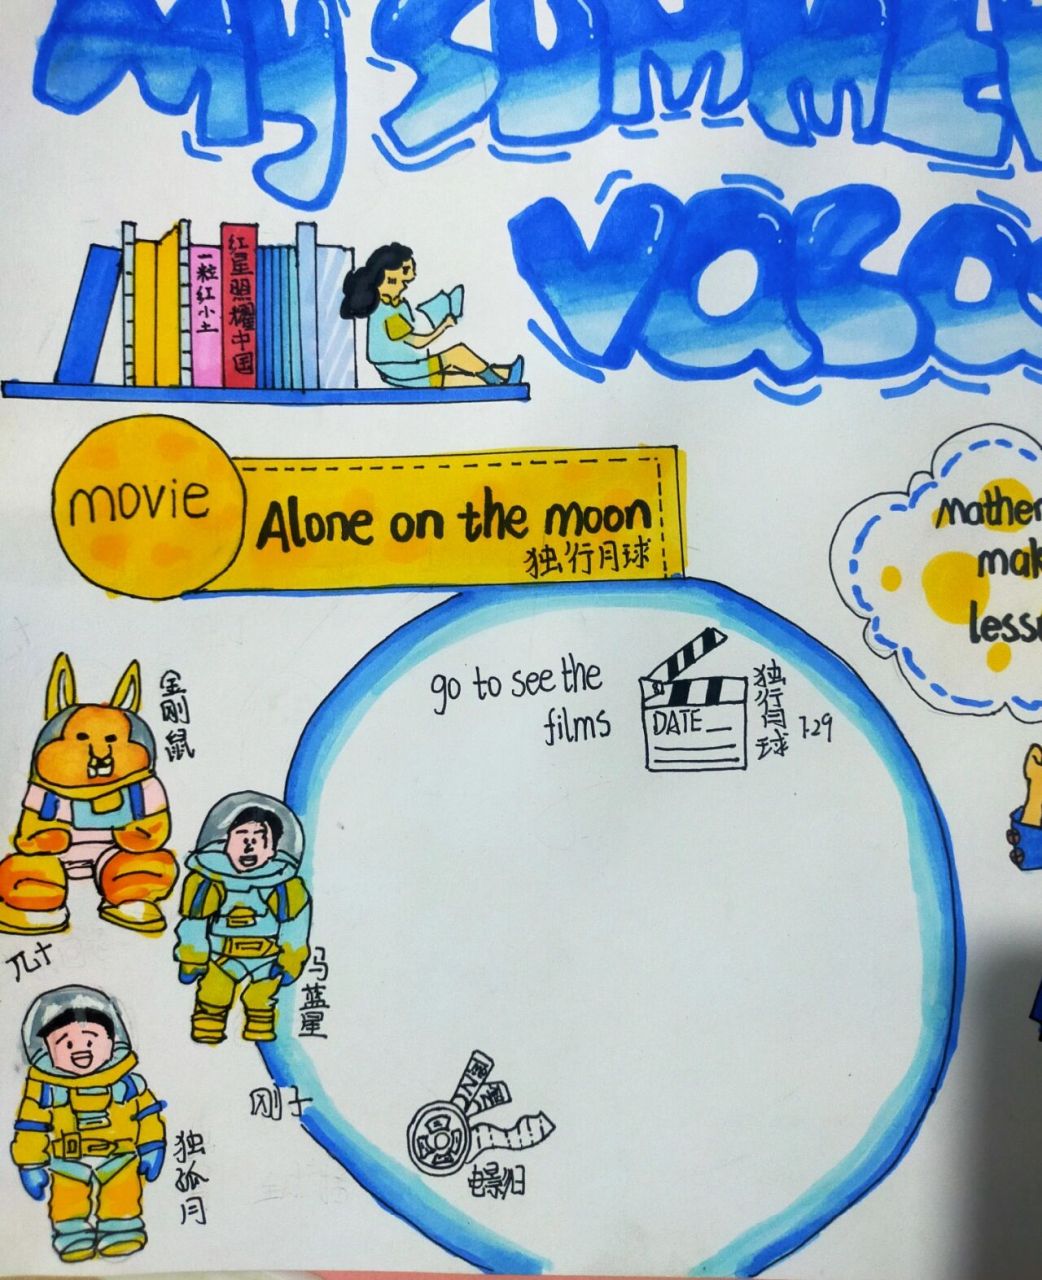 My SUMME
vaca
一粒红小土
红星照耀中国
movie
Alone on the moon
独行月球
mathe
mak
less
go to see the
films
DATE
独行月球
7.29
金刚鼠
马蓝星
刚子
独孤月
电影